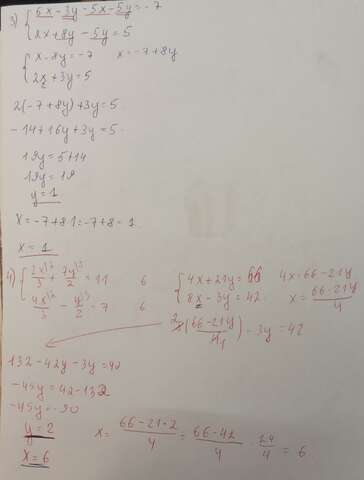 3) { 6x - 3y - 5x - 5y = -7
2x + 8y - 5y = 5
{ x - 8y = -7 x = -7 + 8y
2x + 3y = 5
2(-7 + 8y) + 3y = 5
-14 + 16y + 3y = 5
19y = 5 + 14
19y = 19
y = 1
x = -7 + 8·1 = -7 + 8 = 1
x = 1
4) { 2x/3 + 7y/2 = 11 6 { 4x + 21y = 66 4x = 66 - 21y
4x/3 - y/2 = 7 6 8x - 3y = 42 x = 66 - 21y/4
8(66 - 21y/4) - 3y = 42
132 - 42y - 3y = 42
-45y = 42 - 132
-45y = -90
y = 2 x = 66 - 21·2/4 = 66 - 42/4 = 24/4 = 6
x = 6